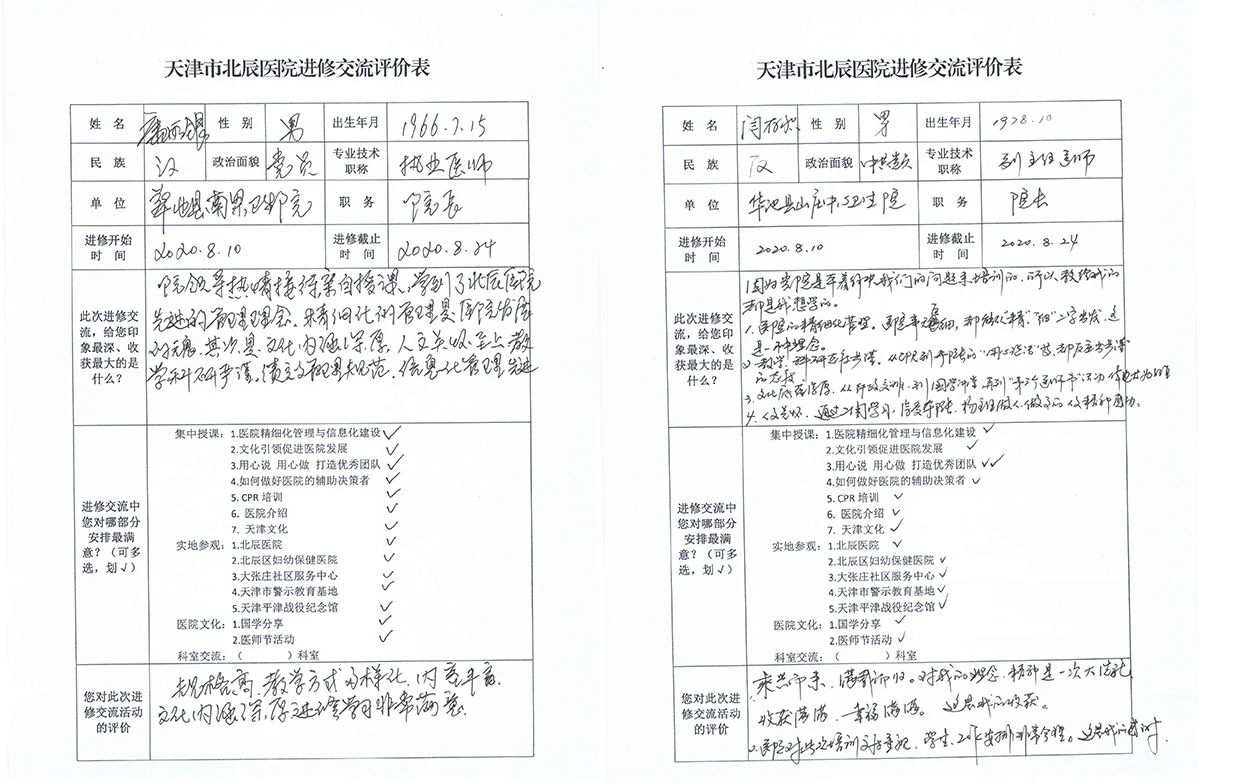 天津市北辰医院进修交流评价表
姓 名 性 别 男 出生年月 1966.7.15
民 族 汉 政治面貌 党员 专业技术职称 执业医师
单 位 职 务 院长
进修开始时 间 2020.8.10 进修截止时 间 2020.8.24
此次进修交流,给您印象最深、收获最大的是什么?
院领导热情接待亲自授课,学到了北辰医院
先进的管理理念。精细化的管理是医院发展
的 其次是文化内涵深厚 人文关怀至上 教
学科研严谨,绩效管理规范,信息化管理先进
进修交流中您对哪部分安排最满意?(可多选,划√)
集中授课:1.医院精细化管理与信息化建设 ✓
2.文化引领促进医院发展 ✓
3.用心说 用心做 打造优秀团队 ✓
4.如何做好医院的辅助决策者 ✓
5. CPR 培训 ✓
6. 医院介绍 ✓
7. 天津文化 ✓
实地参观:1.北辰医院 ✓
2.北辰区妇幼保健医院 ✓
3.大张庄社区服务中心 ✓
4.天津市警示教育基地 ✓
5.天津平津战役纪念馆 ✓
医院文化:1.国学分享 ✓
2.医师节活动 ✓
科室交流:( )科室
您对此次进修交流活动的评价
规格高,教学方式多样化,内容丰富,
文化内涵深厚,进修学习非常满意。
天津市北辰医院进修交流评价表
姓 名 性 别 男 出生年月 1978.10
民 族 汉 政治面貌 中共党员 专业技术职称 副主任医师
单 位 华池县山庄中心卫生院 职 务 院长
进修开始时 间 2020.8.10 进修截止时 间 2020.8.24
此次进修交流,给您印象最深、收获最大的是什么?
我们的问题来培训的,所以教给我的
都是我想学的。
1.医院的精细化管理。
是一种理念。
2.教学、科研
3.文化底蕴
4.人文关怀,通过2周学习
进修交流中您对哪部分安排最满意?(可多选,划√)
集中授课:1.医院精细化管理与信息化建设 ✓
2.文化引领促进医院发展 ✓
3.用心说 用心做 打造优秀团队 ✓✓
4.如何做好医院的辅助决策者 ✓
5. CPR 培训 ✓
6. 医院介绍 ✓
7. 天津文化 ✓
实地参观:1.北辰医院 ✓
2.北辰区妇幼保健医院 ✓
3.大张庄社区服务中心 ✓
4.天津市警示教育基地 ✓
5.天津平津战役纪念馆 ✓
医院文化:1.国学分享 ✓
2.医师节活动 ✓
科室交流:( )科室
您对此次进修交流活动的评价
乘兴而来,满载而归。对我的理念、精神是一次大洗礼
收获满满,幸福满满。这是我的收获。
2.医院对此次培训 安排非常合理。这是我的